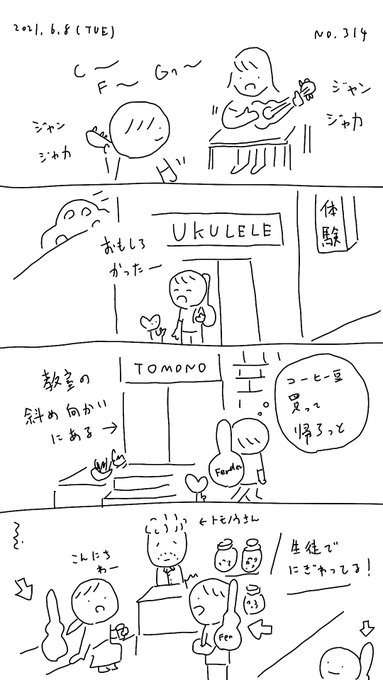 2021.6.8(TUE)
NO.314
C〜
F〜
G7〜
ジャン
ジャカ
ジャン
ジャカ
UKULELE
体験
おもしろ
かったー
TOMONO
教室の
斜め向かい
にある→
コーヒー豆
買って
帰ろっと
Fender
←トモノさん
こんにち
わー
生徒で
にぎわってる!
Fen